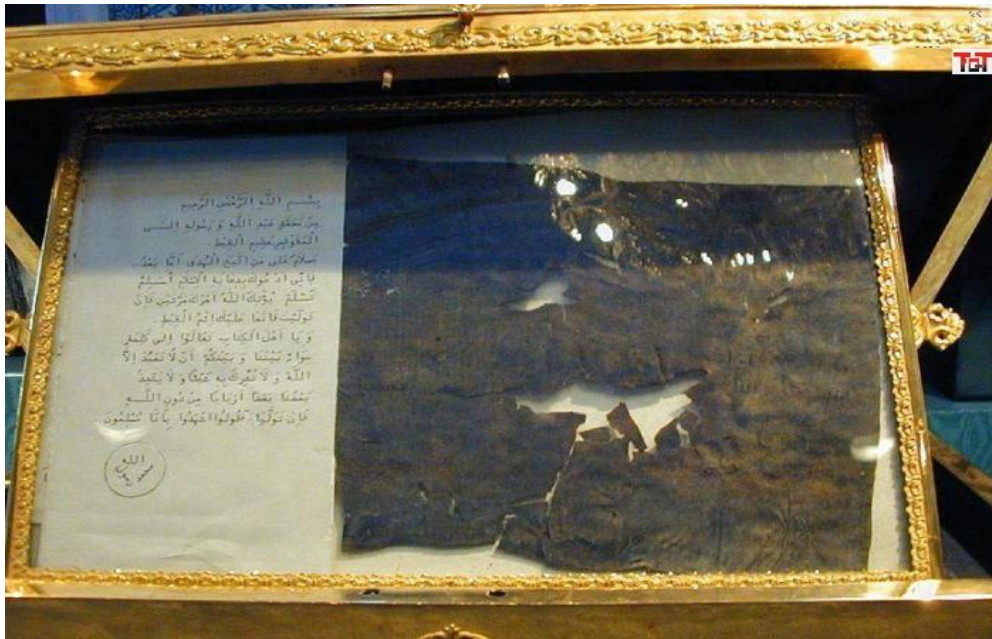 بِسْمِ اللَّهِ الرَّحْمٰنِ الرَّحِيمِ
مِنْ مُحَمَّدٍ عَبْدِ اللَّهِ وَ رَسُولِهِ إِلَـــى
الْمُقَوْقِسِ عَظِيمِ الْقِبْطِ .
سَلَامٌ عَلَى مَنِ اتَّبَعَ الْهُدَى أَمَّا بَعْدُ ..
فَإِنِّي أَدْعُوكَ بِدِعَايَةِ الْإِسْلَامِ أَسْلِمْ
تَسْلَمْ يُؤْتِكَ اللَّهُ أَجْرَكَ مَرَّتَيْنِ فَإِنْ
تَوَلَّيْتَ فَإِنَّمَا عَلَيْكَ إِثْمُ الْقِبْطِ .
وَ يَا أَهْلَ الْكِتَابِ تَعَالَوْا إِلَى كَلِمَةٍ
سَوَاءٍ بَيْنَنَا وَ بَيْنَكُمْ أَنْ لَا نَعْبُدَ إِلَّا
اللَّهَ وَ لَا نُشْرِكَ بِهِ شَيْئًا وَ لَا يَتَّخِذَ
بَعْضُنَا بَعْضًا أَرْبَابًا مِنْ دُونِ اللَّـــهِ
فَإِنْ تَوَلَّوْا فَقُولُوا اشْهَدُوا بِأَنَّا مُسْلِمُونَ
الله
رسول
محمد
TGT